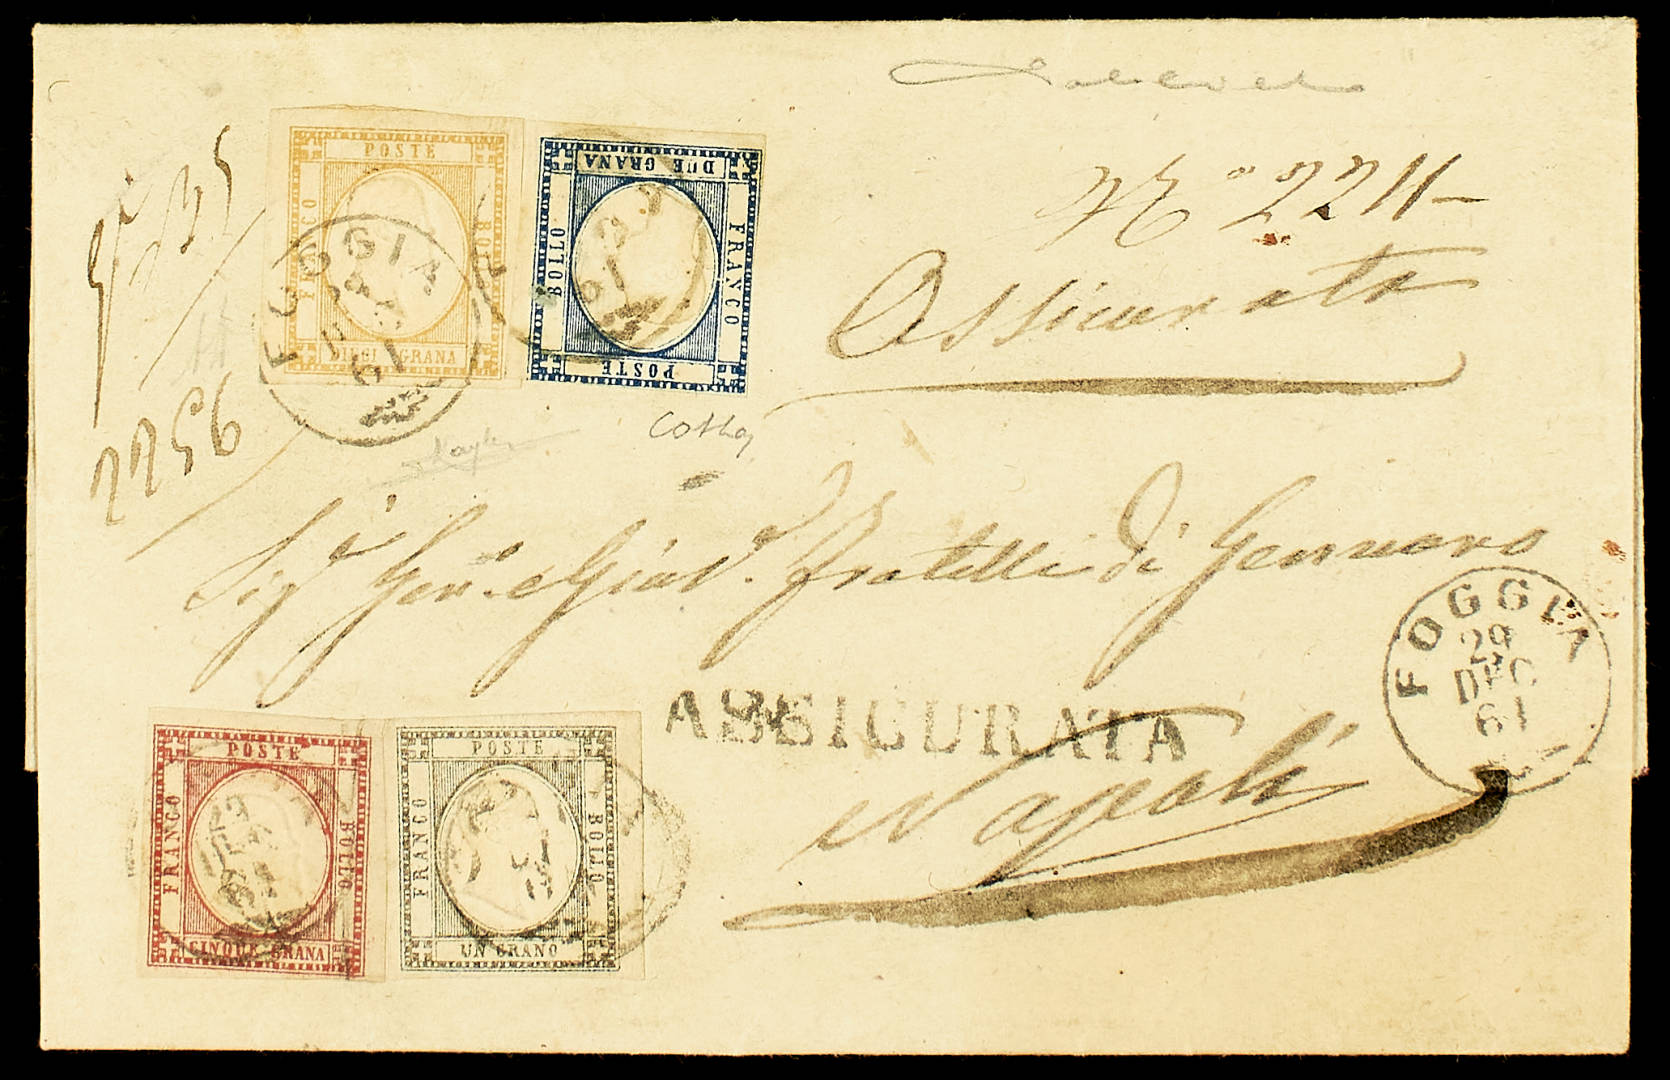 N.° 2211
Assicurata
POSTE
FRANCO
BOLLO
DIECI GRANA
FOGGIA
61
DUE GRANA
FRANCO
BOLLO
POSTE
61
2256
Sig.ri Gen.o e Giu.e fratelli di Gennaro
ASSICURATA
Napoli
FOGGIA
29
DEC
61
POSTE
FRANCO
BOLLO
CINQUE GRANA
POSTE
FRANCO
BOLLO
UN GRANO